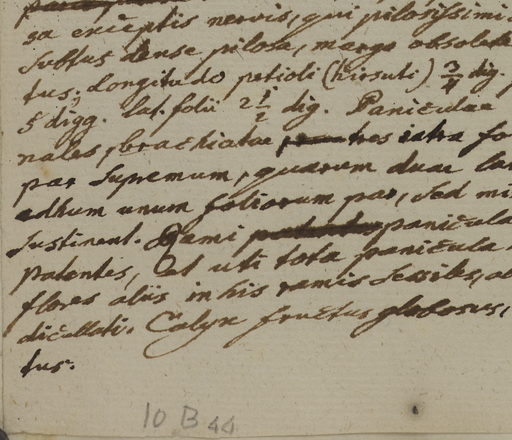 sa exceptis nervis, qui pilosissimi
subtus dense pilosa, margo obsolete
tus; Longitudo petioli (hirsuti) 3/4 dig.
5 digg. lat. folii 2 1/2 dig. Paniculae
nales, brachiatae, tres extra fo
par supremum, quarum duae la
adhum unum foliorum par, sed mi
sustinent. Rami panicula
patentes, et uti tota panicula
flores aliis in his ramis sessiles, a
dicellati. Calyx fructus globosus,
tus.
10 B 44